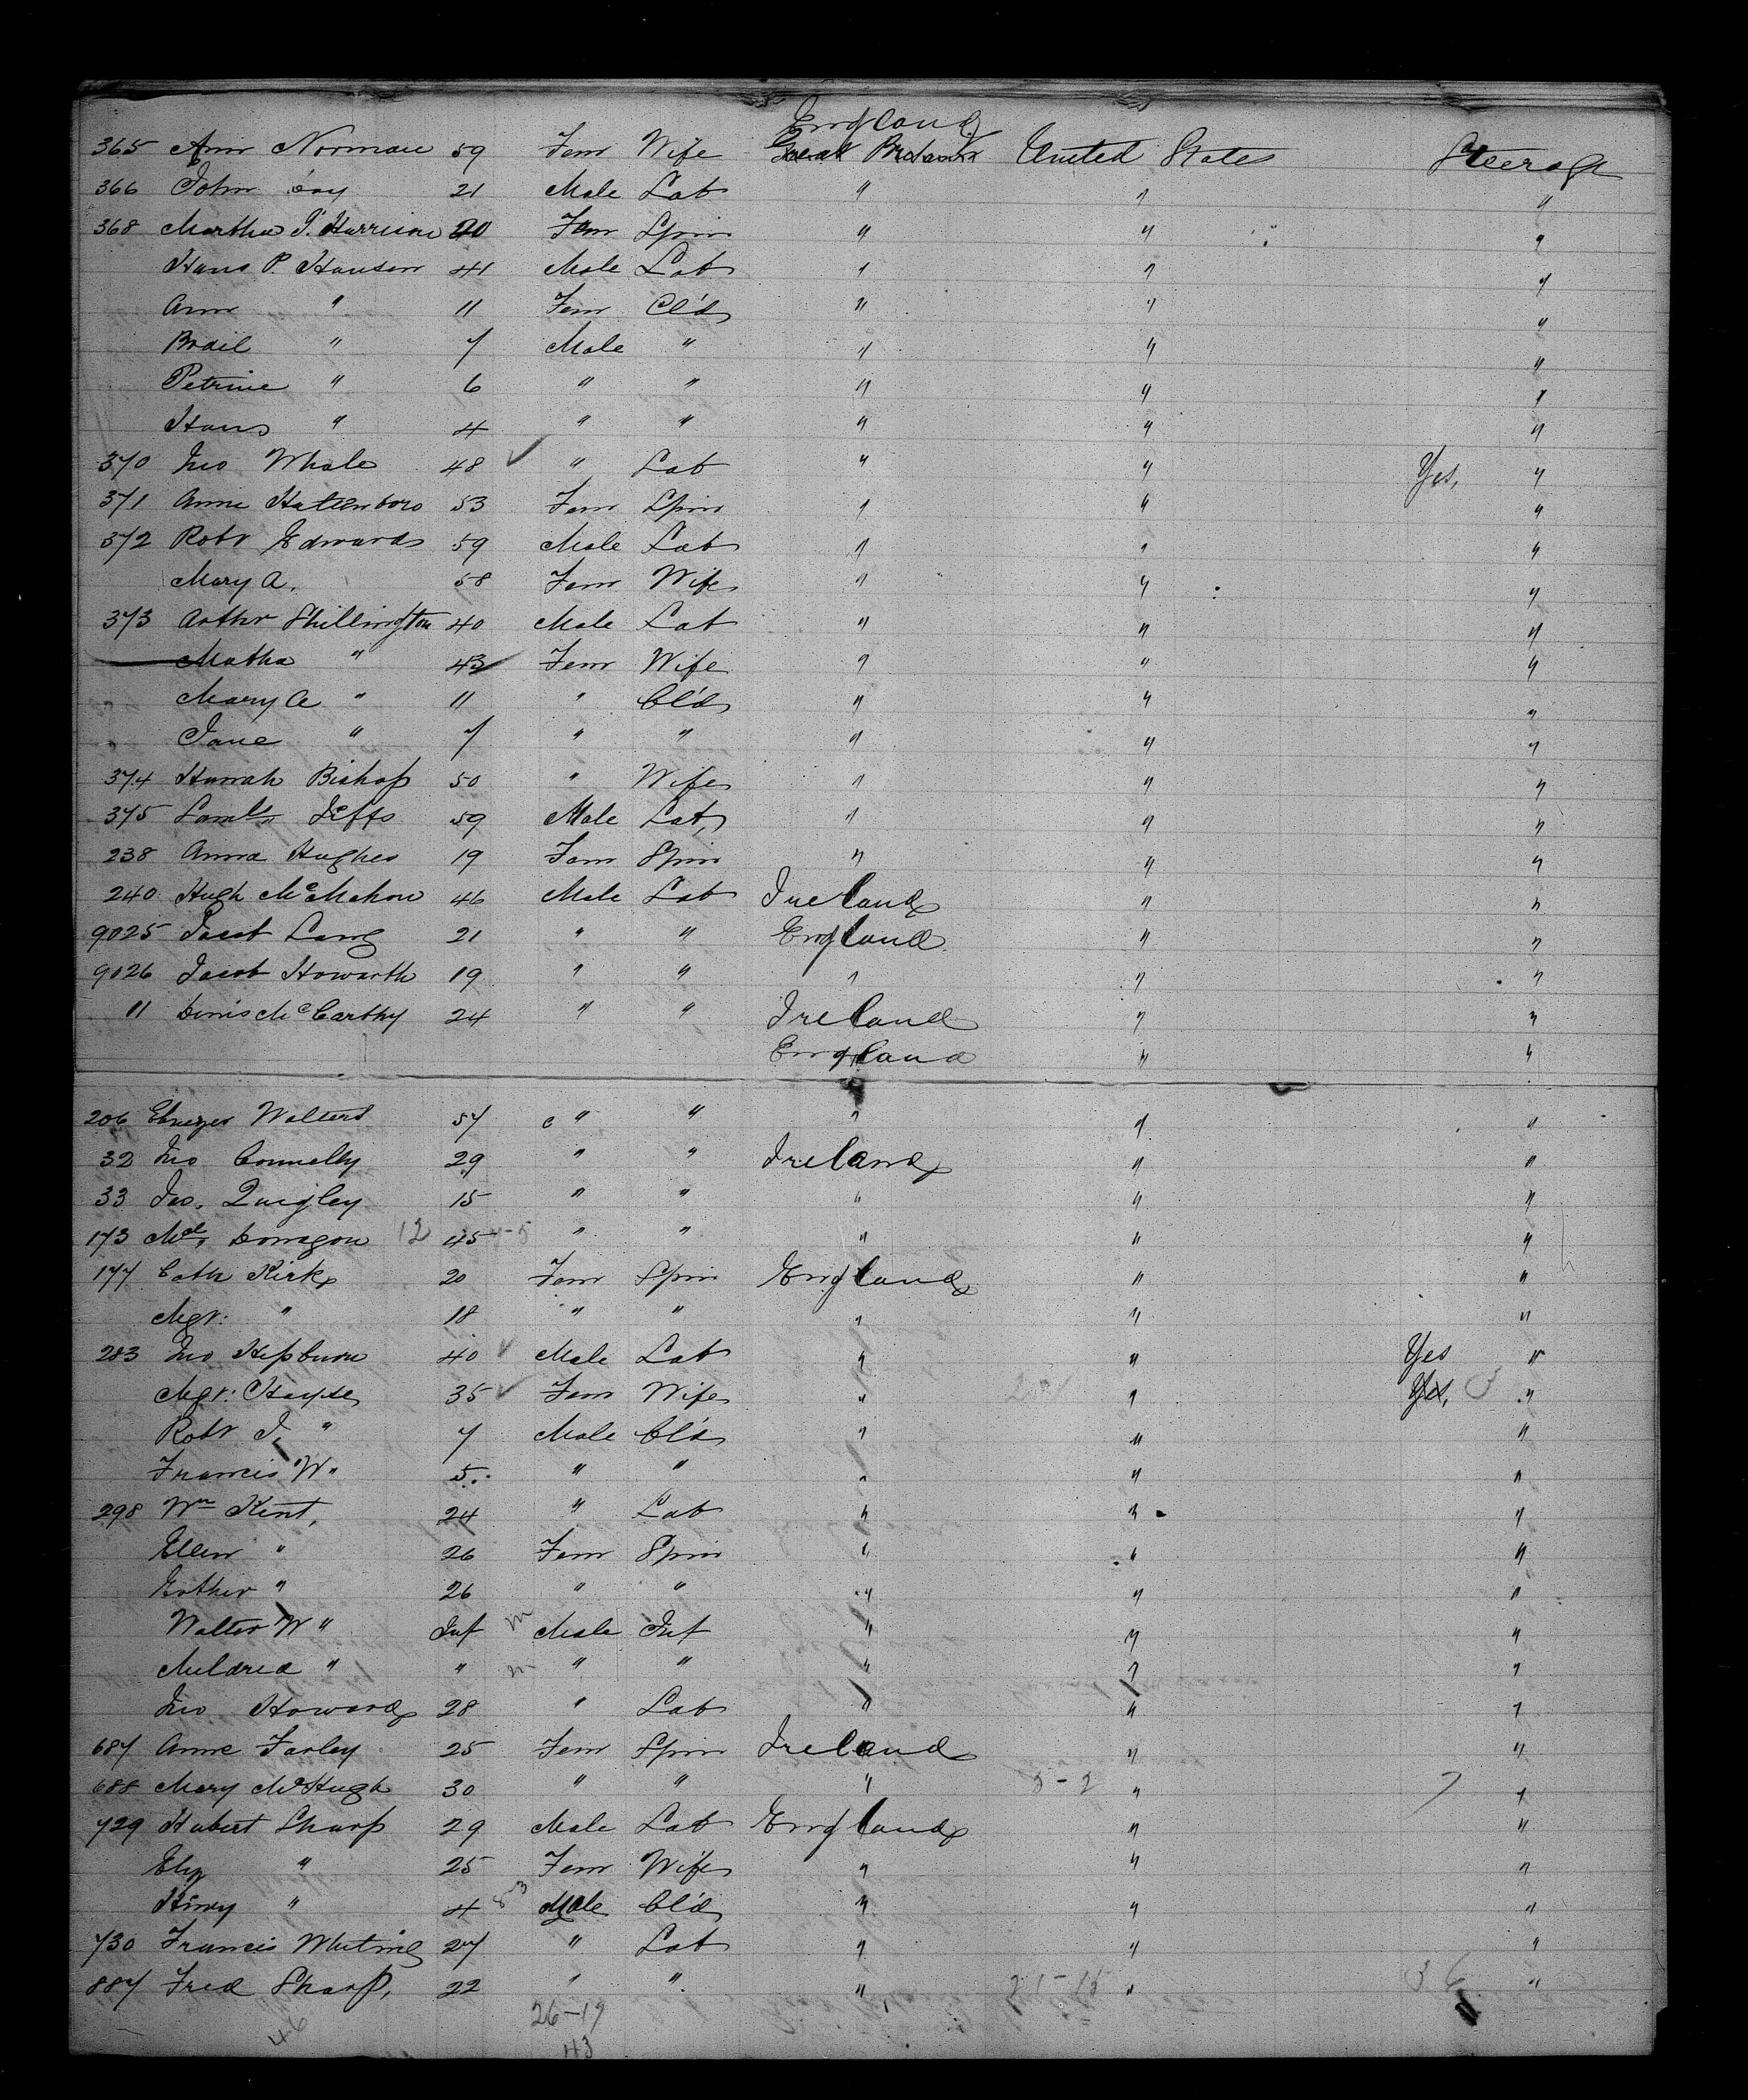 England
365 Ann Norman 59 Fem Wife Great Britain United States Steerage
366 John 21 Male Lab " " "
368 Martha J. Harrison 20 Fem Spin " " "
Hans P. Hansen 41 Male Lab " " "
Ann " 11 Fem Cl'd " " "
" 7 Male " " " "
Petrine " 6 " " " " "
Hans " 4 " " " " "
370 Jno Whale 48 " Lab " " Yes, "
371 Anne Hattenboro 53 Fem Spin " " "
372 Robt Edwards 59 Male Lab " " "
Mary A. 58 Fem Wife " " "
373 Arthr Shillington 40 Male Lab " " "
Matha " 43 Fem Wife " " "
Mary A " 11 " Cl'd " " "
Jane " 7 " " " " "
374 Hannah Bishop 50 " Wife " " "
375 Saml Jeffs 59 Male Lab, " " "
238 Anna Hughes 19 Fem Spin " " "
240 Hugh McMahon 46 Male Lab Ireland " "
9025 Jacob Lang 21 " " England " "
9026 Jacob Howarth 19 " " " " "
11 Denis McCarthy 24 " " Ireland " "
England " "
206 Ebnezer Walters 57 " " " " "
32 Jno Connelly 29 " " Ireland " "
33 Jas. Quigley 15 " " " " "
173 Ml. Donegon 12 45 -5 " " " " "
177 Cath Kirk 20 Fem Spin England " "
Mgt: " 18 " " " " "
283 Jno Hepburn 40 Male Lab " " Yes "
Mgt: Hayse 35 Fem Wife " " Yes, 3 "
Robt J. " 7 Male Cl'd " " "
Francis W " 5 " " " " "
298 Wm Kent, 24 " Lab " " "
Ellen " 26 Fem Spin " " "
Esther " 26 " " " " "
Walter W " Inf m Male Inf " " "
Mildred " " m " " " " "
Jno Howard 28 " Lab " " "
687 Anne Farley 25 Fem Spin Ireland " "
688 Mary McHugh 30 " " " 5-2 " 7 "
729 Hubert Sharp 29 Male Lab England " "
Eliz " 25 Fem Wife " " "
Henry " 4 Male Cl'd " " "
730 Francis Whiting 27 " Lab " " "
887 Fred Sharp, 22 " " " 21-15 " 36 "
46 26-17
43